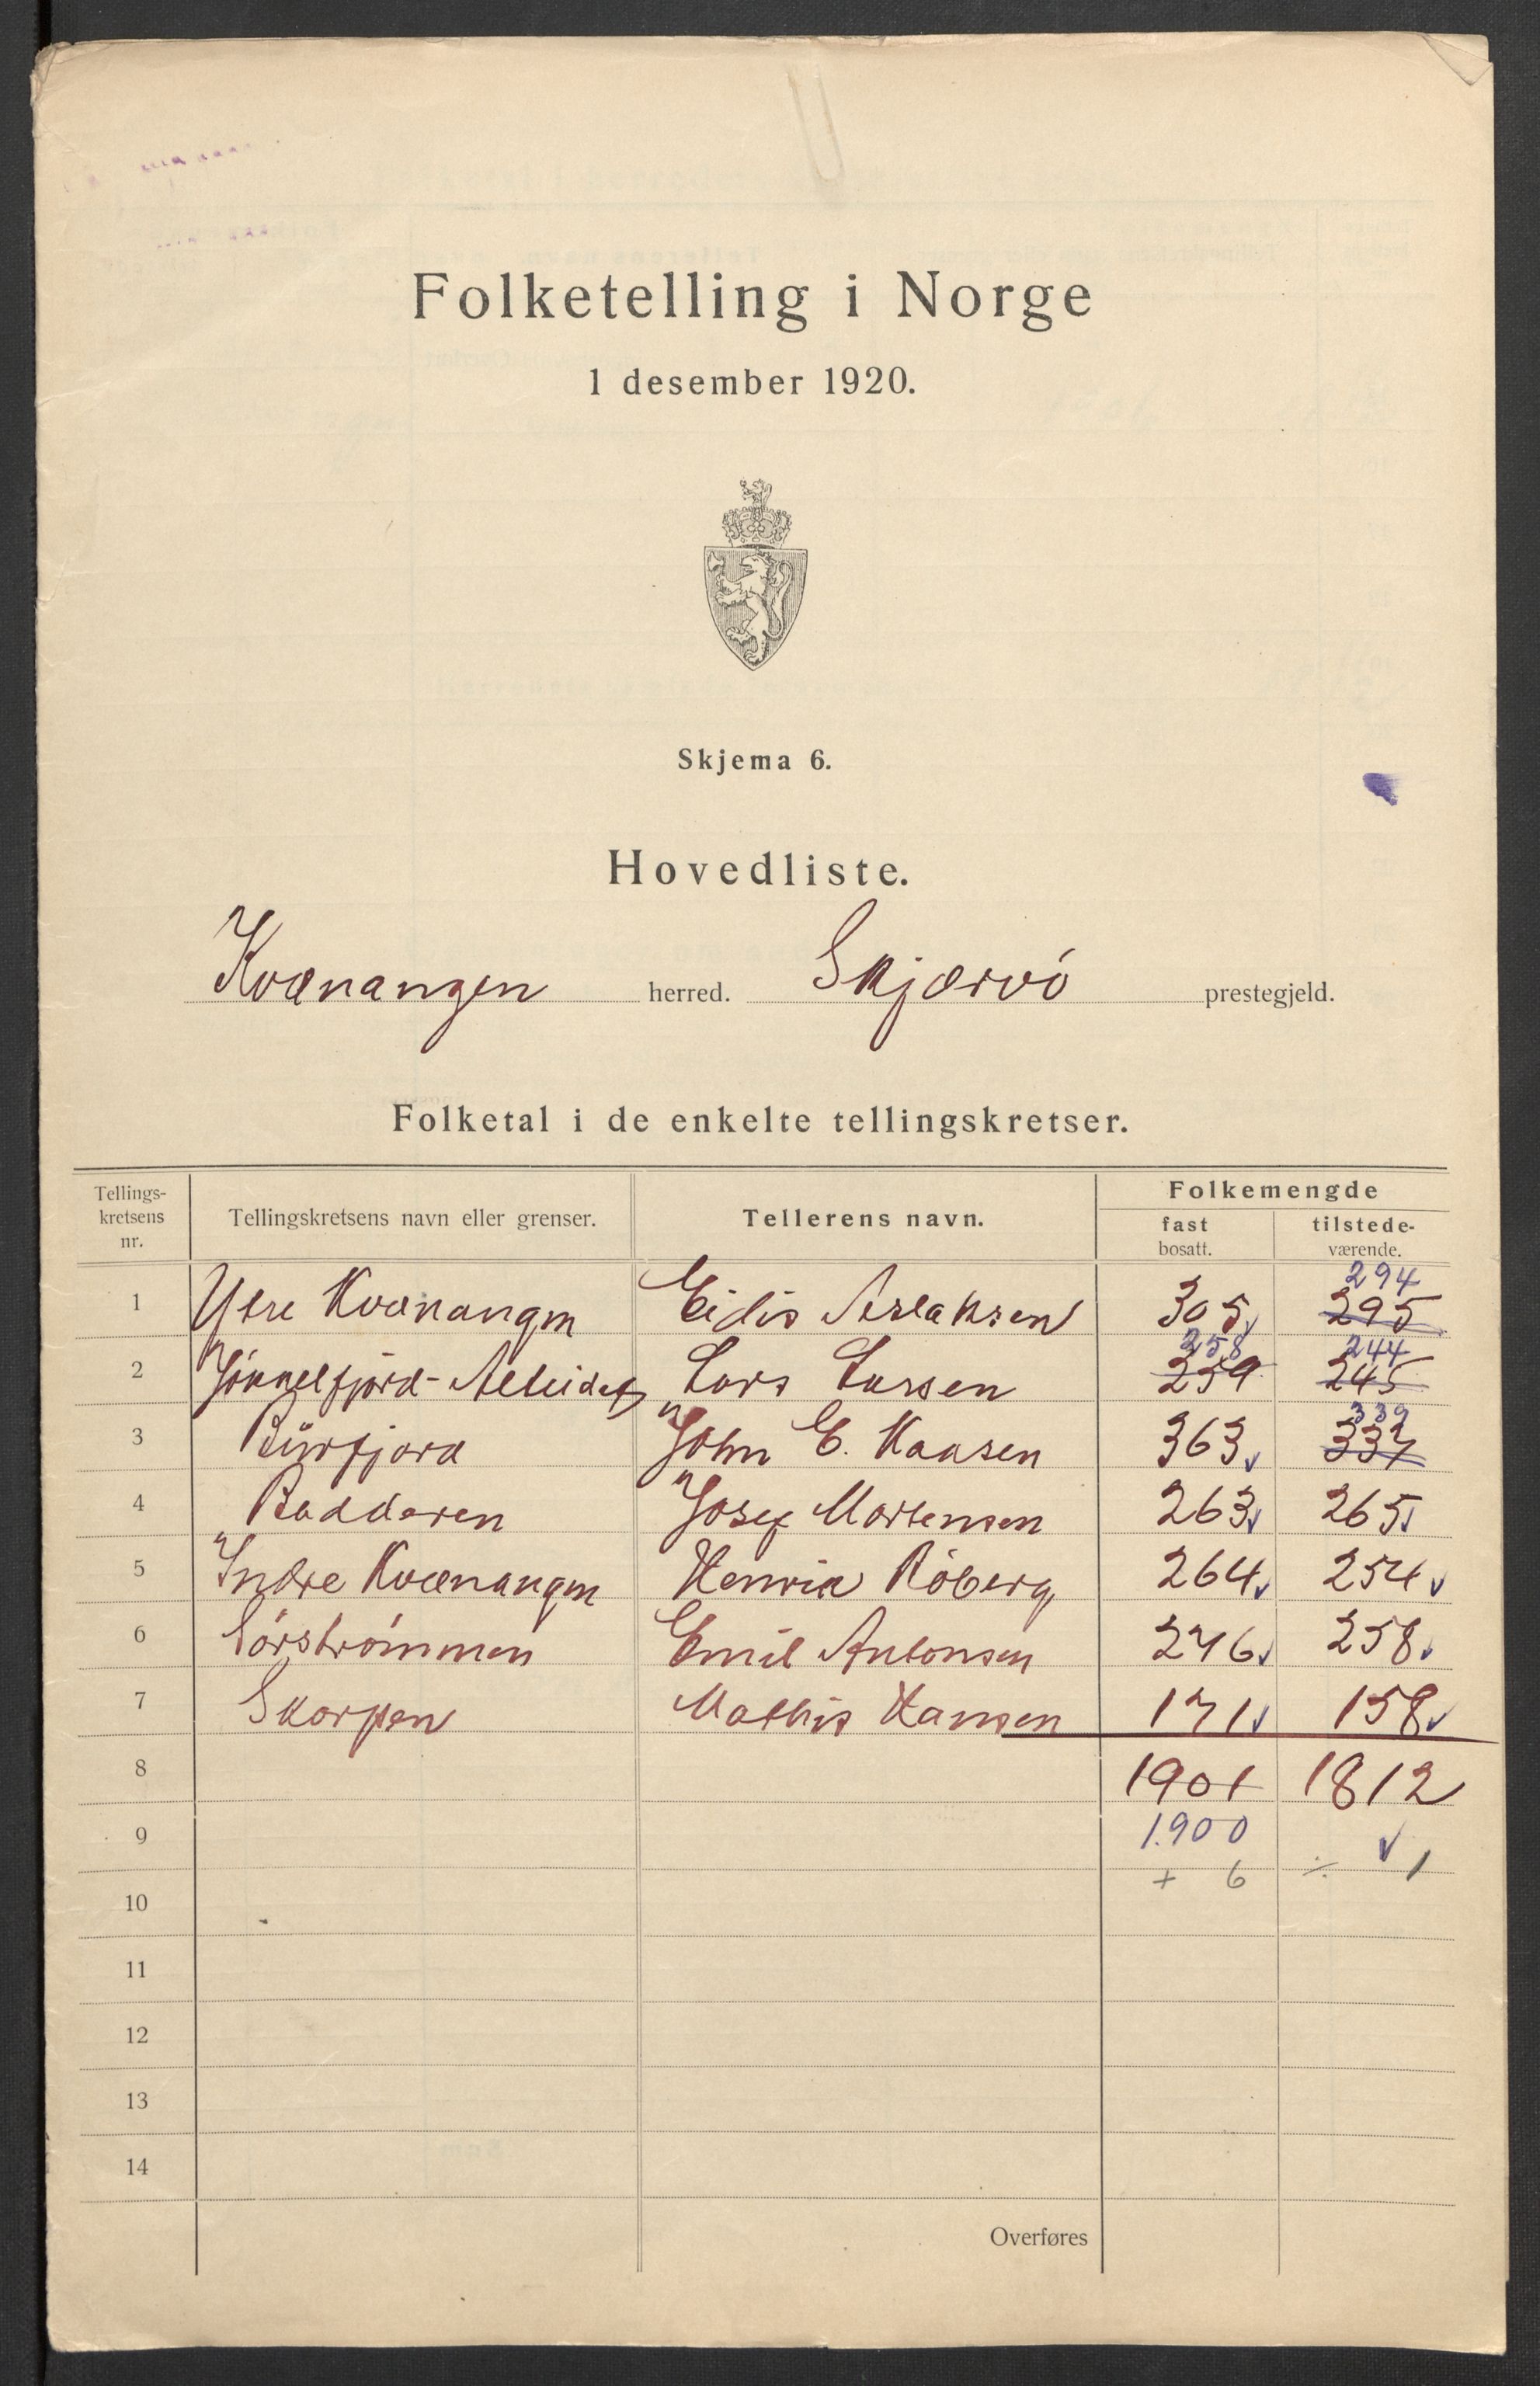 Folketelling i Norge
1 desember 1920.
Skjema 6.
Hovedliste.
Kvænangen herred. Skjærvö prestegjeld.
Folketal i de enkelte tellingskretser.
Tellings-kretsens nr. Tellingskretsens navn eller grenser. Tellerens navn. Folkemengde
fast bosatt. tilstede-værende.
294
1 Ytre Kvænangen Eidis Aslaksen 305 ✓ 295
258 244
2 Jökkelfjord-Alteidet Lars Larsen 259 245
339
3 Bürfjord John E. Kaasen 363 ✓ 337
4 Badderen Josef Mortensen 263 ✓ 265 ✓
5 Indre Kvænangen Henrik Röberg 264 ✓ 254 ✓
6 Sörströmmen Emil Antonsen 276 ✓ 258 ✓
7 Skorpen Mathis Hansen 171 ✓ 158 ✓
8 1901 1812
9 1.900 ✓
+ 6 ÷ 1
10
11
12
13
14
Overføres